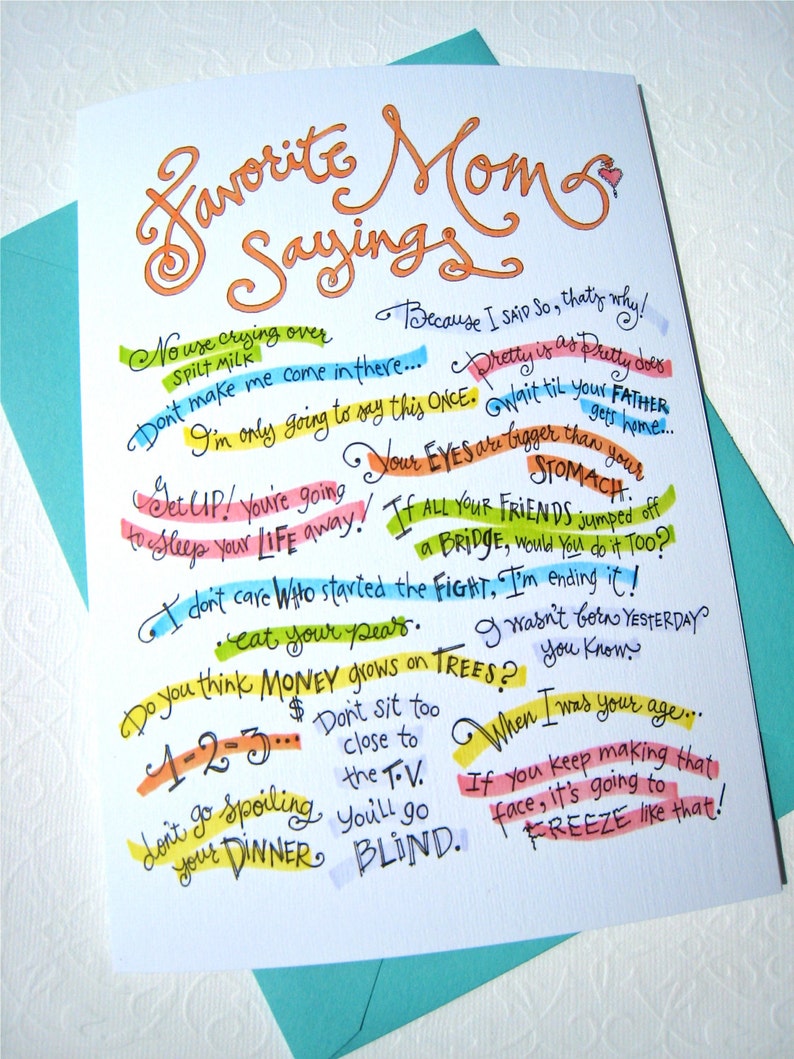 Favorite Mom
Sayings
Because I SAID SO, that's why!
No use crying over
SPILT MILK
Pretty is as Pretty does
Don't make me come in there...
Wait til your FATHER
gets home...
I'm only going to say this ONCE.
Your EYES are bigger than your
STOMACH.
Get UP! You're going
to sleep your LIFE away!
If ALL YOUR FRiENDS jumped off
a BRIDGE, would YOU do it TOO?
I don't care WHO started the FIGHT, I'm ending it!
eat your peas.
I wasn't born YESTERDAY
you know.
Do you think MONEY grows on TREES?
$
1-2-3...
Don't sit too
close to
the T.V.
You'll go
BLiND.
When I was your age...
If you keep making that
face, it's going to
FREEZE like that!
don't go spoiling
your DINNER